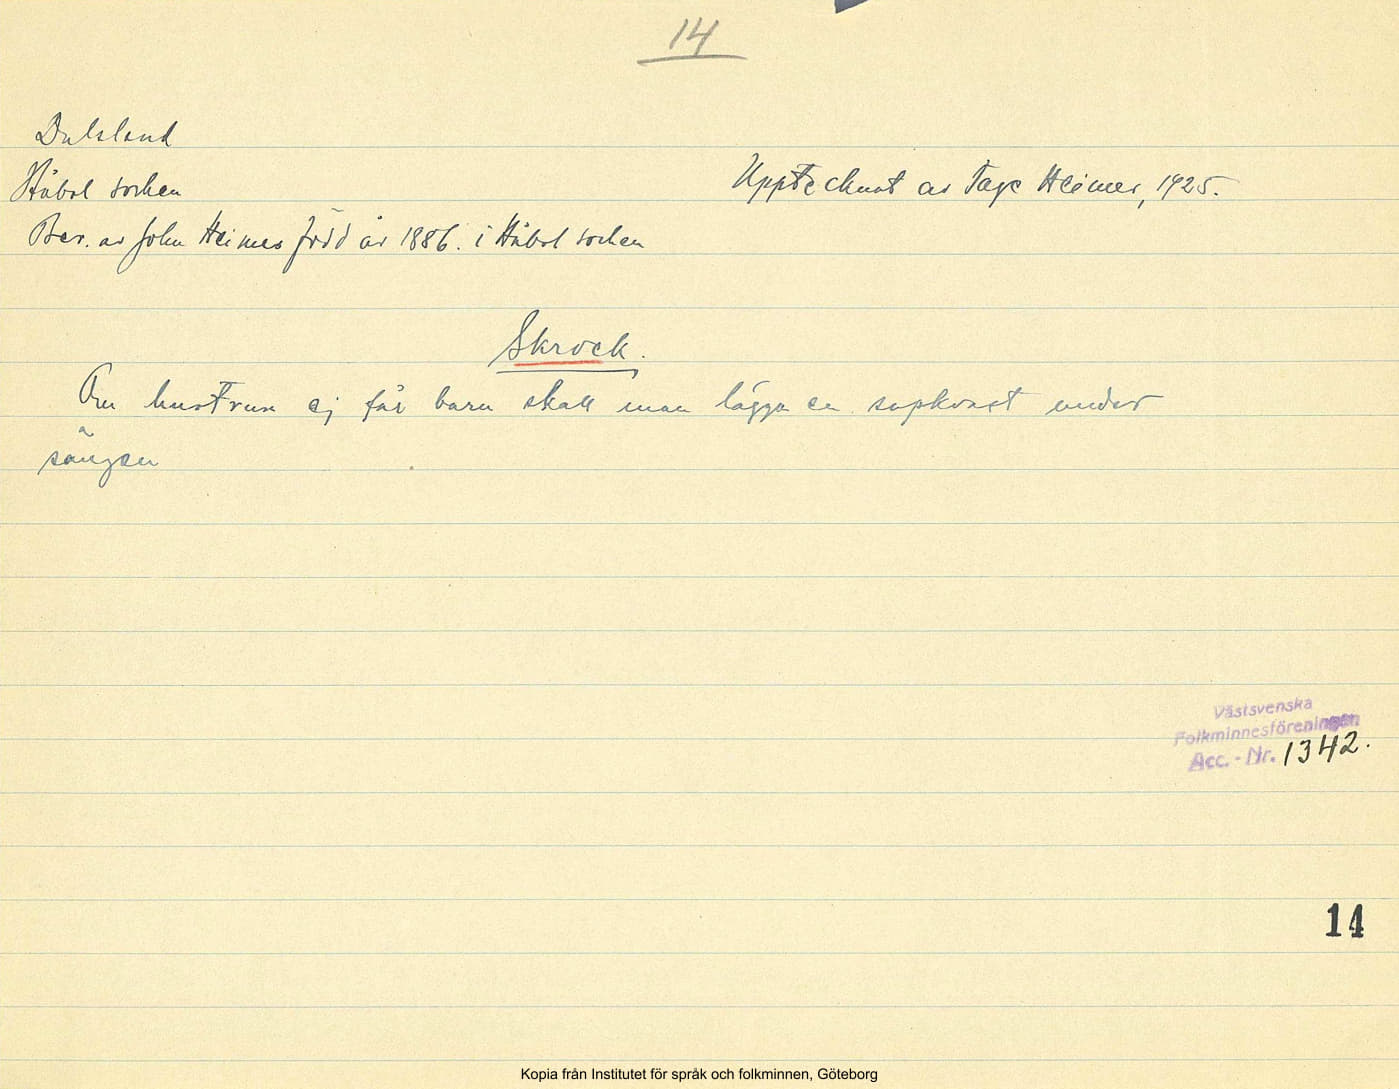 14
Dalsland
Håbol socken
Upptecknat av Tage Heimer, 1925.
Ber. av John Heimer född år 1886. i Håbol socken
Skrock.
Om hustrun ej får barn skall man lägga en sopkvast under
sängen
Västsvenska
Folkminnesföreningen
Acc. - Nr. 1342.
14
Kopia från Institutet för språk och folkminnen, Göteborg